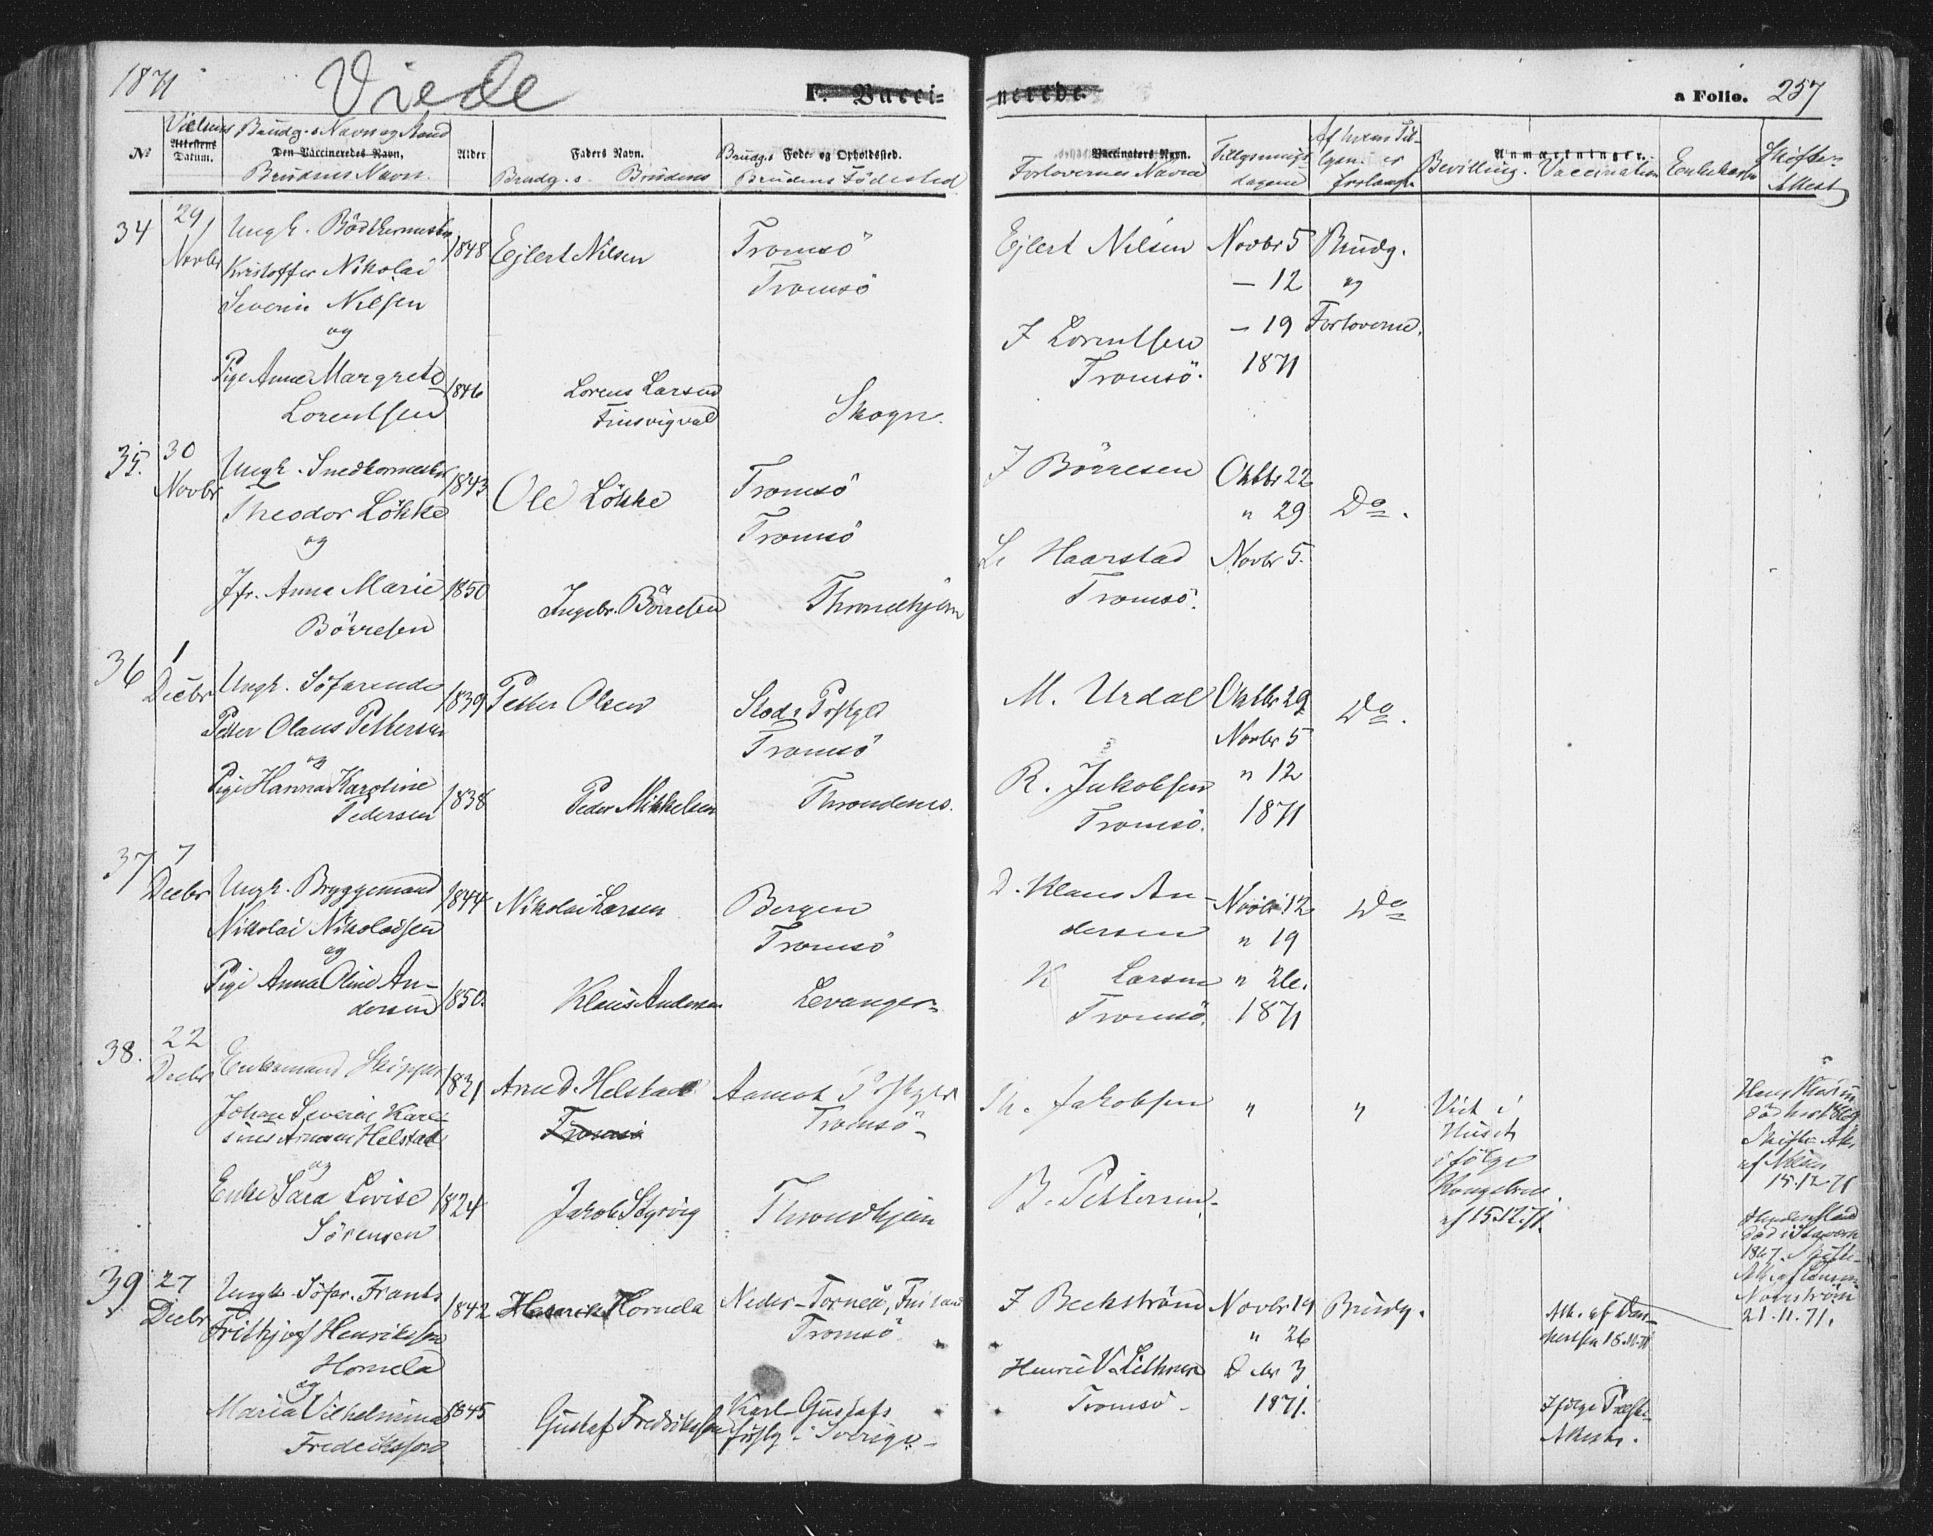 1871 Viede F. Vacci-
nerede. a Folio. 257
No
Vielses Attestens Datum.
Brudg.s Navn og Stand
Den Vaccineredes Navn,
Brudens Navn.
Alder
Faders Navn.
Brudg.s. Brudens
Brudg.s Føde- og Opholdssted.
Brudens Födested
Vaccinators Navn.
Forlovernes Navne
Tillysnings
dagene
Af hvem Til-
lysn. er
forlangt.
Anmærkninger.
Bevilling. Vaccination Enkekasse
Skifte-
Attest
34 29/ Novbr
Ungk. Bödkermester
Kristoffer Nikolai
Severin Nilsen
og
Pige Anne Margrete
Lorentsen
1848
1846
Ejlert Nilsen
Lorens Larsen
Finsvigval
Tromsö
Tromsö
Skogn.
Ejlert Nilsen
J Lorentsen
Tromsö.
Novbr 5
— 12
— 19
1871
Brudg.
og
Forloverne.
35. 30 Novbr
Ungk. Snedkermester
Theodor Lökke
og
Jfr. Anna Marie
Börresen
1843
1850
Ole Lökke
Ingebr. Börresen
Tromsö
Tromsö
Throndhjem
J Börresen
L. Haarstad
Tromsö.
Oktbr 22
" 29
Novbr 5.
Do.
36 1 Decbr
Ungk. Söfarende
Petter Olaus Pettersen
og
Pige Hanna Karoline
Pedersen
1839
1838
Petter Olsen
Peder Mikkelsen
Stods Præstgld
Tromsö
Throndenes.
M. Urdal
R. Jakobsen
Tromsö.
Oktbr 29
Novbr 5
" 12
1871
Do.
37 7 Decbr
Ungk. Bryggemand
Nikolai Nikolaisen
og
Pige Anna Oline An-
dersen
1844
1850.
Nikolai Larsen
Klaus Andersen
Bergen
Tromsö
Levanger
D. Klaus An-
dersen
K Larsen
Tromsö.
Novbr 12
" 19
" 26.
1871
Do
38. 22 Decbr
Enkemand Skipper
Johan Severin Kare-
sius Arnesen Helstad
og
Enke Sara Lovise
Sörensen
1831
1824
Arne D. Helstad
Tromsö
Jakob Slyvig
Aamot Præstgld
Tromsö
Throndhjem
Th. Jakobsen
B. Pettersen
"
"
Viet i
Huset
ifölge
Kongebrev
af 15.12.71.
Hans
död her 1869
Skifte Att.
af
15.12.71
död i
1867. Skifte-
Att. af
21.11.71.
39 27 Decbr
Ungk. Söfar. Frants
Frithjof Henriksson
Hornela
og
Maria Vilhelmina
Frederiksson
1842
1845
Henrik Hornela
Gustaf Frederiksson
Neder-Torneå, Finland
Tromsö
Karl Gustafs
Försg. i Sverige
J Beckström
Henric V. Lithner
Tromsö
Novbr 19
" 26
Dcbr 3
1871.
Brudg.
Att. af Dan-
ielssen 18.10.71
Ifölge Præste-
Attest.